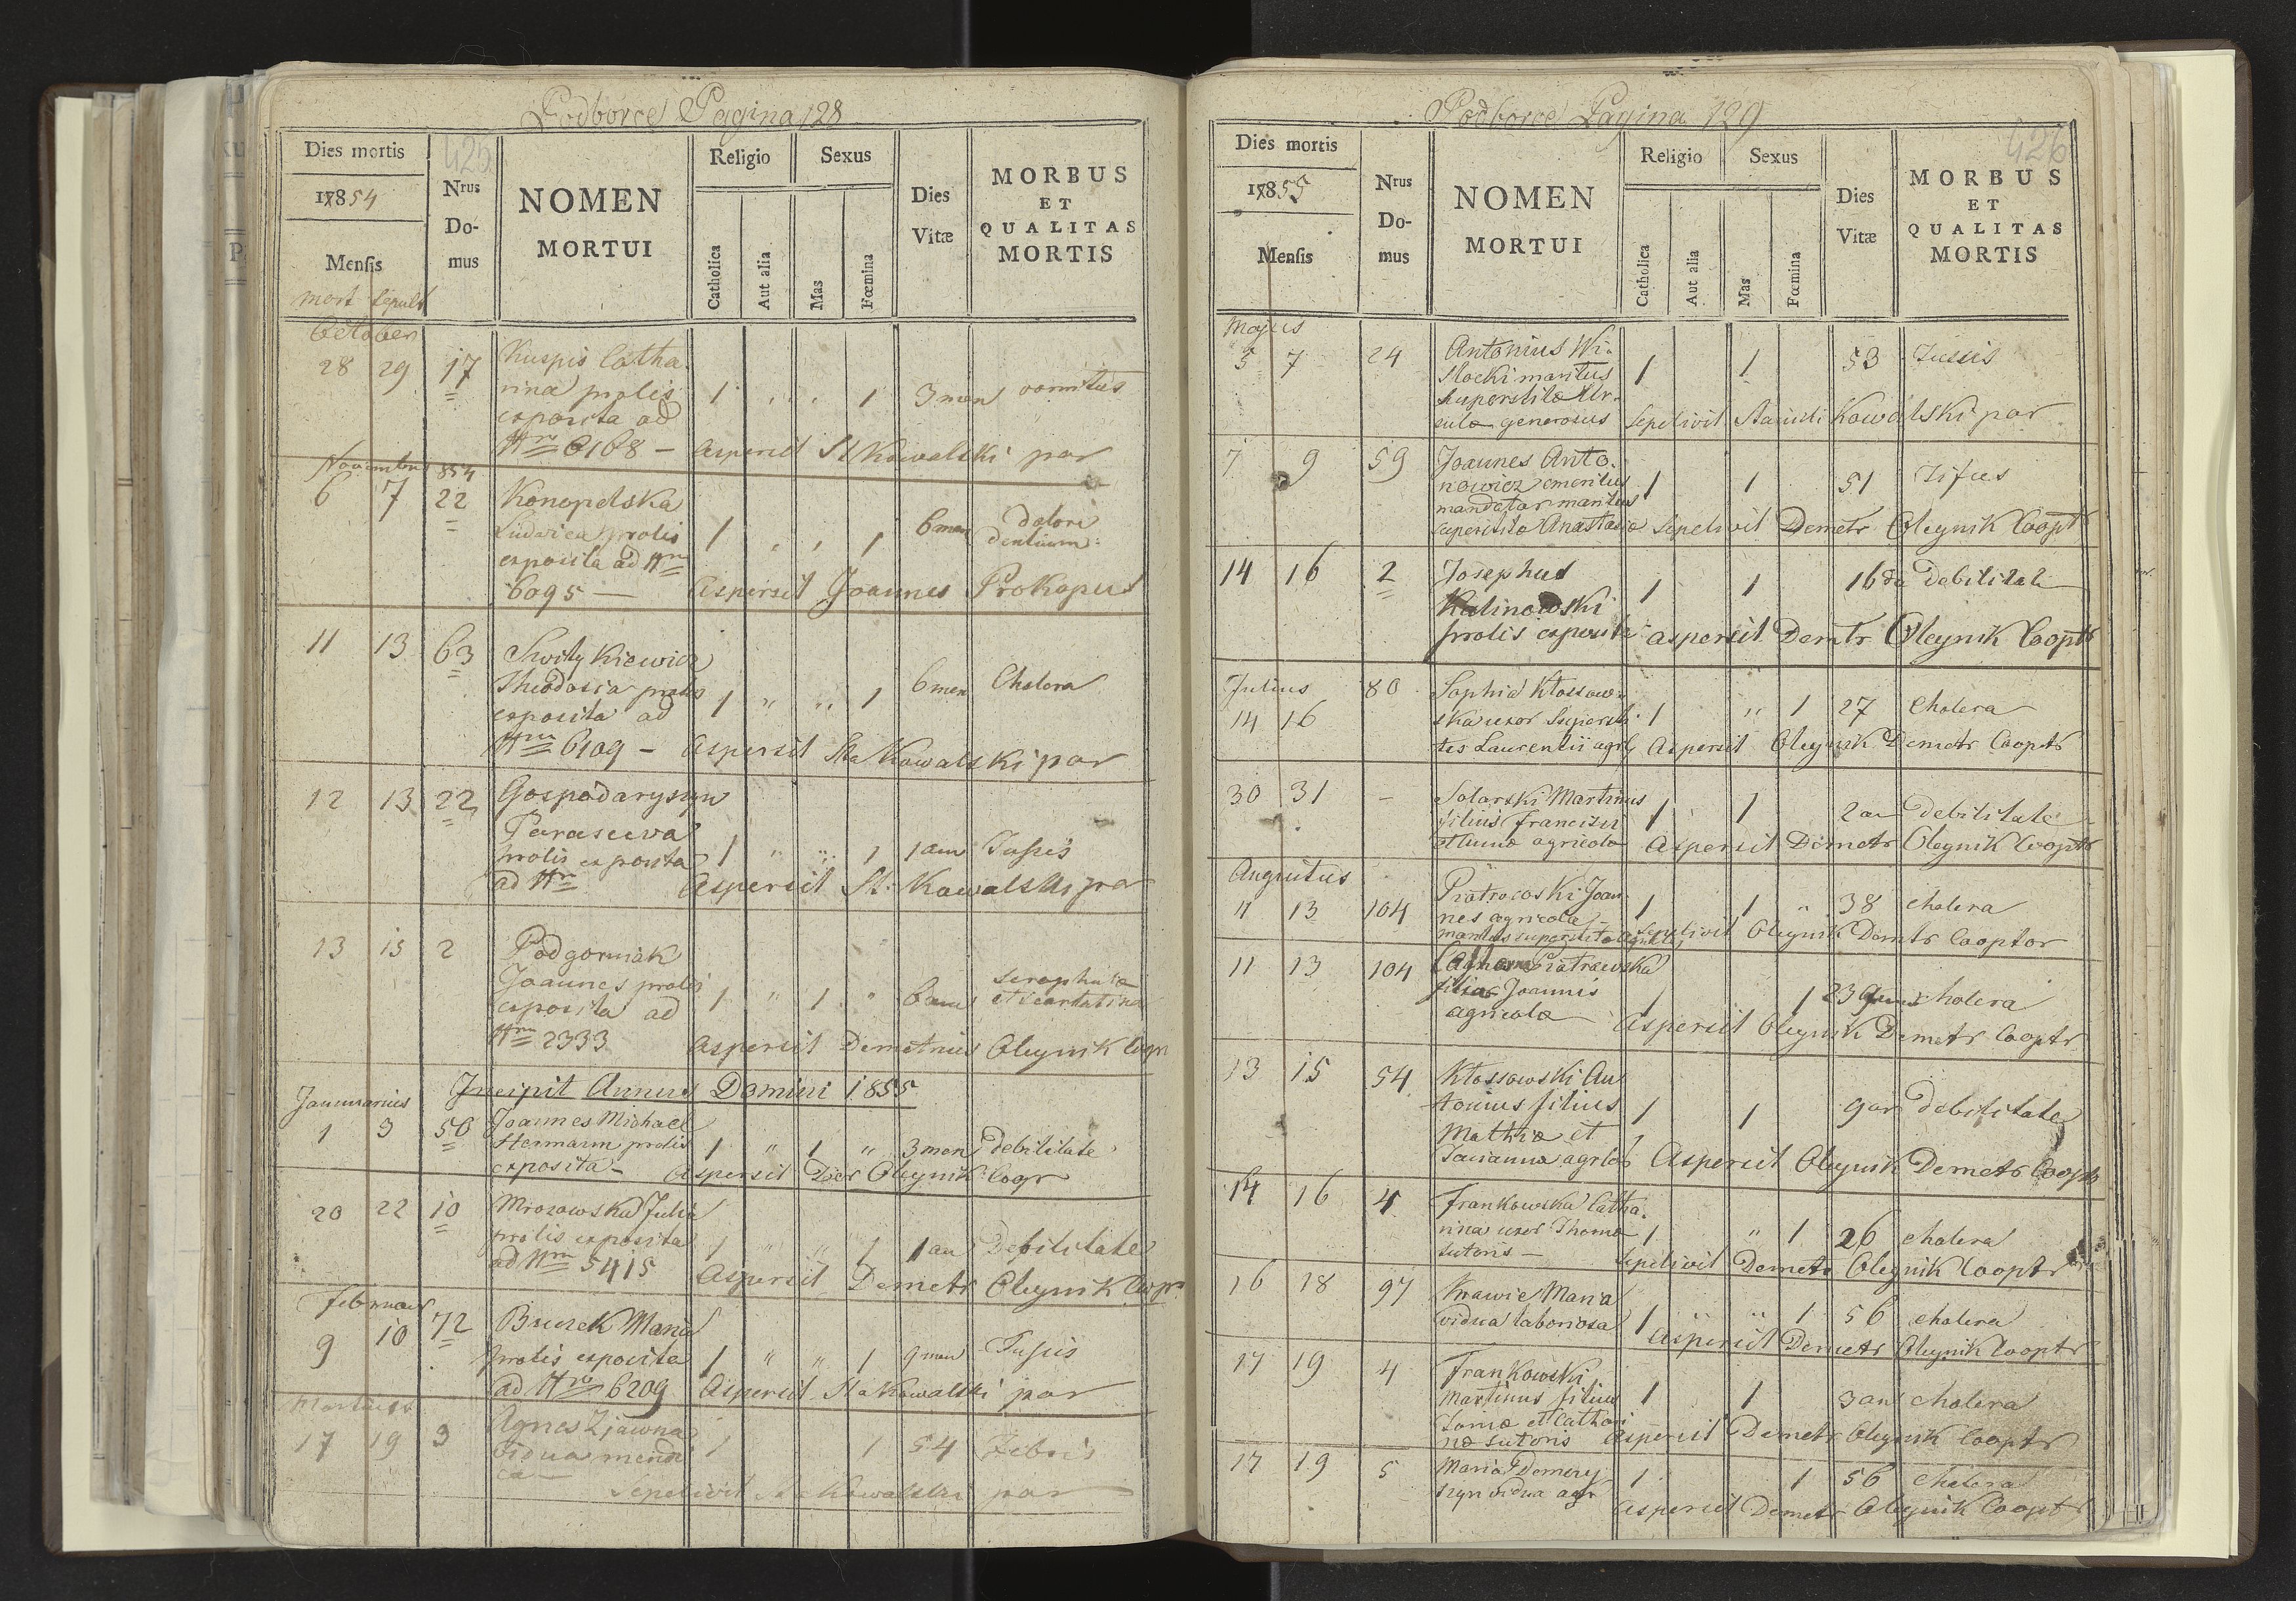 Podborce Pagina 128
425
Dies mortis
18854
Mensis
mort sepult
Nrus Do-mus
NOMEN MORTUI
Religio
Catholica
Aut alia
Sexus
Mas
Fœmina
Dies Vitæ
MORBUS ET QUALITAS MORTIS
October
28 29 17 Kuspis Catha
rina prolis 1 " " 1 3 men vomitus
exposita ad
Nrm 6168 – Aspersit St Kowalski par
November 854
6 7 22 Konopelska
Ludovica prolis 1 " " 1 6 men dolore dentium
exposita ad Nrm
6095 — Aspersit Joannes Prokopus
11 13 63 Switykiewicz
Theodosia prolis 1 " " 1 6 men Cholera
exposita ad
Nrm 6109 – Aspersit Sta Kowalski par
12 13 22 Gospodaryszyn
Parasceva
prolis exposita 1 " " 1 1 an Tussis
ad Nrm Aspersit St. Kowalski par
13 15 2 Podgorniak
Joannes prolis 1 " 1 "
exposita ad
Nrm 2333 Aspersit Demetrius Oleynik Coop
Incipit Annus Domini 1855
Januarius
1 3 50 Joannes Michael
Hermann prolis 1 " 1 " 3 men debilitate
exposita – Aspersit Oleynik Coop
20 22 10 Mrozowska Julia
prolis exposita 1 " " 1 1 an Debilitate
ad Nrm 5415 Aspersit Demetr Oleynik Coop
Februar
9 10 72 Maria
prolis exposita 1 " " 1 9 men Tussis
ad Nrm 6209 Aspersit Sta Kowalski par
Martius
17 19 3 Agnes Zjawna
vidua mendi 1 1 54 Febris
ca —
Sepelivit Sta Kowalski par
Podborce Pagina 129
426
Dies mortis
18855
Mensis
Nrus Do-mus
NOMEN MORTUI
Religio
Catholica
Aut alia
Sexus
Mas
Fœmina
Dies Vitæ
MORBUS ET QUALITAS MORTIS
Majus
5 7 24 Antonius Wi-
slocki maritus 1 1 53 Tussis
superstitæ Ur-
sulæ generosus Sepelivit Kowalski par
7 9 59 Joannes Anto-
nowicz emeritus 1 1 51 Tifus
mandatar maritus
superstitæ Anastasiæ Sepelivit Demetr Oleynik Coopt
14 16 2 Josephus
Kalinowski 1 1 16 da debilitate
prolis exposita Aspersit Demtr Oleynik Cooptr
Julius
14 16 80 Sophia Klossow-
ska uxor supersti- 1 " 1 27 Cholera
tes Laurentii agrlæ Aspersit Oleynik Demetr Cooptr
30 31 – Solarski Martinus
filius Francisci 1 1 2 an debilitate
et Annæ agricolæ Aspersit Demetr Oleynik Cooptr
Augustus
11 13 104 Piatrowski Joan
nes agricola 1 1 " 38 cholera
maritus superstitæ Sepelivit Oleynik Demtr Cooptor
11 13 104 Piatrowska
filia Joannis 1 1 cholera
agricolæ Aspersit Oleynik Demetr Cooptr
13 15 54 Klossowski An
tonius filius 1 1 9 an debilitate
Mathiæ et
agrlæ Aspersit Oleynik Demetr Cooptr
14 16 4 Frankowska Catha-
rina uxor Thomæ 1 " 1 26 cholera
sutoris — Sepelivit Demetr Oleynik Cooptr
16 18 97 Krawic Maria
vidua laboriosa 1 " " 1 56 cholera
Aspersit Demetr Oleynik Cooptr
17 19 4 Frankowski
Martinus filius 1 1 3 an cholera
Tomæ et Cathari
næ sutoris Aspersit Demetr Oleynik Cooptr
17 19 5 Maria Demery
szyn vidua agr 1 1 56 Cholera
Aspersit Demetr Oleynik Cooptr